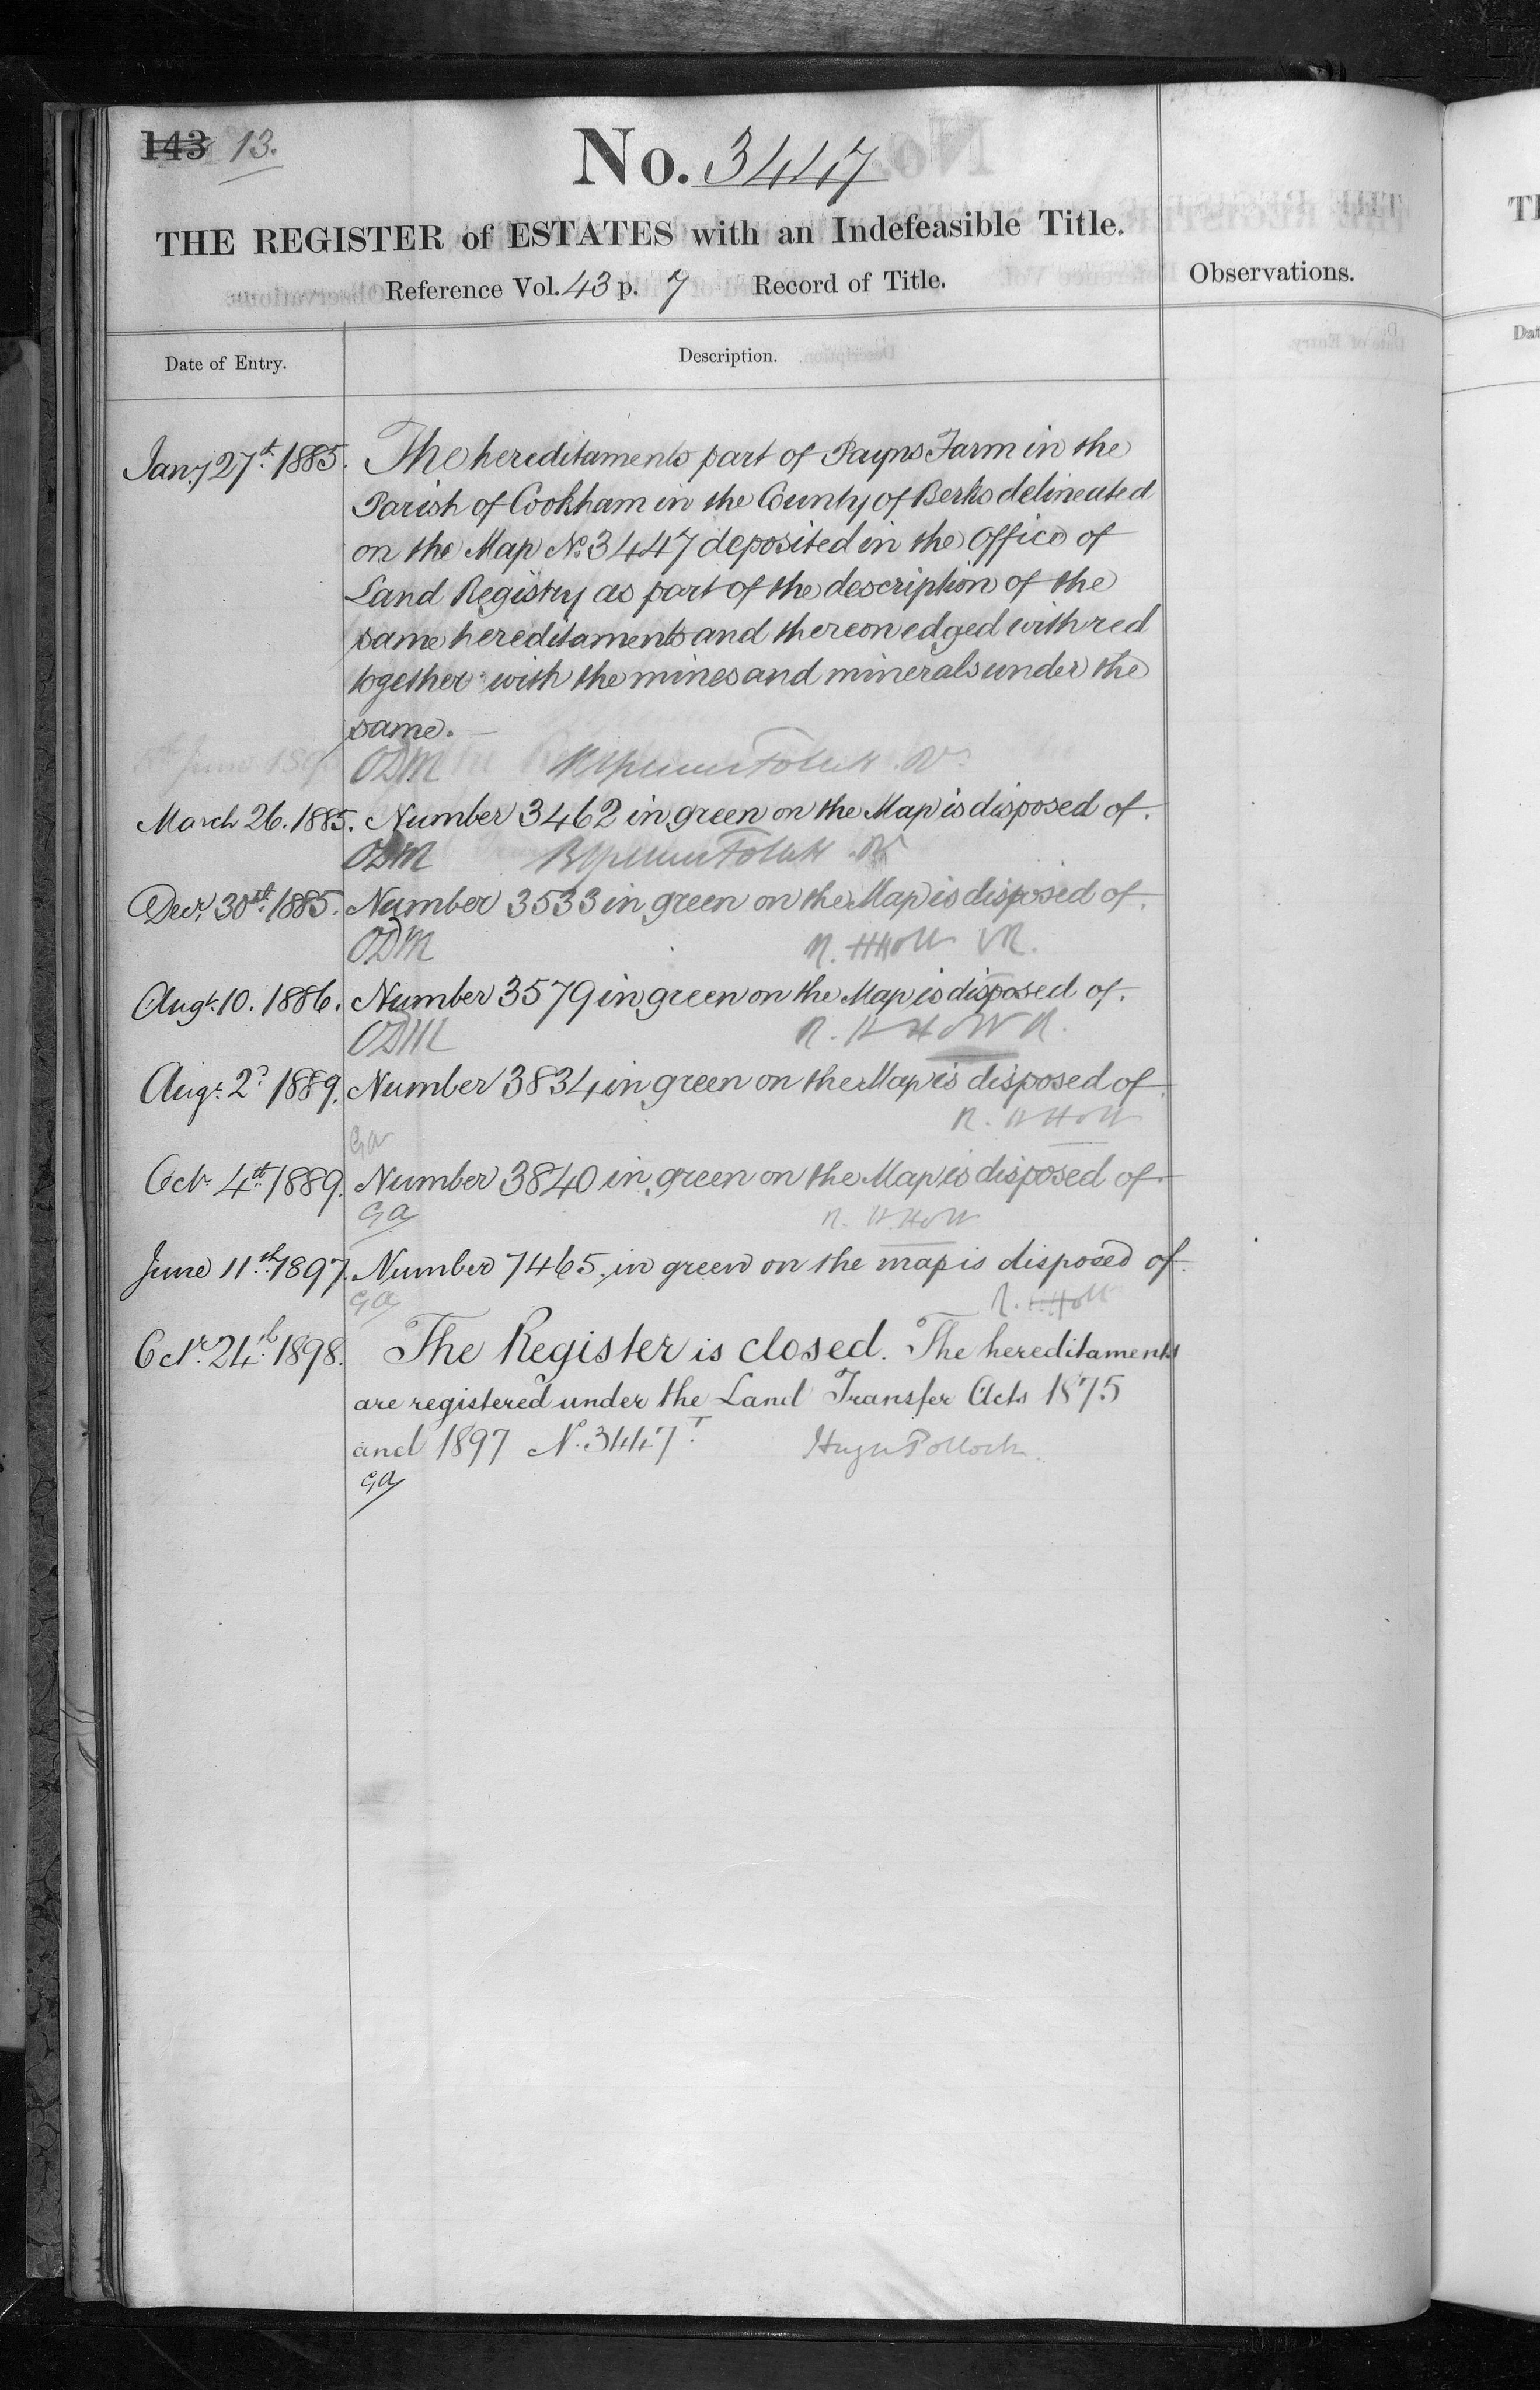 143 13.
No. 3447
THE REGISTER of ESTATES with an Indefeasible Title.
Reference Vol. 43 p. 7 Record of Title.
Observations.
Date of Entry.
Description.
Jany 27th 1885. The hereditaments part of Payns Farm in the
Parish of Cookham in the County of Berks delineated
on the Map No 3447 deposited in the Office of
Land Registry as part of the description of the
same hereditaments and thereon edged with red
together with the mines and minerals under the
same.
ODM
March 26. 1885. Number 3462 in green on the Map is disposed of.
ODM
Decr 30th 1885. Number 3533 in green on the Map is disposed of.
ODM R. H Holt
Augt 10. 1886. Number 3579 in green on the Map is disposed of.
ODM R. H Holt
Augt 2d 1889. Number 3834 in green on the Map is disposed of.
GA R. H Holt
Octr 4th 1889. Number 3840 in green on the Map is disposed of.
GA R. H. Holt
June 11th 1897. Number 7465 in green on the map is disposed of.
GA R. H. Holt
Octr 24th 1898. The Register is closed. The hereditaments
are registered under the Land Transfer Acts 1875
and 1897 No. 3447T. Hugh Pollock.
GA